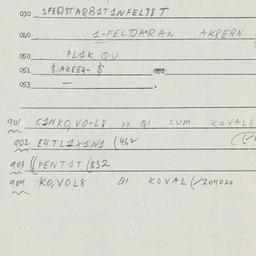 030 SFE5J3TARBIT1NFEL78T
040 1-FELDARAN AKBERN
050 PL1K QU
051 $AKBE4-$
053 — .
901 C1NKO,VO-L8 >> QI CUM KOVAL8
902 E4TL1X1N1 (462
903 ((PENT1T (832
904 KO,VOL8 QI KOVAL(204020